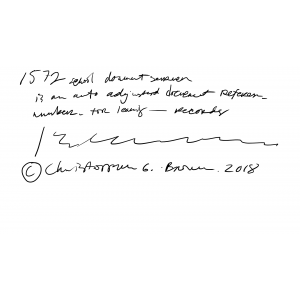 1572 school document
is an auto adjusted document reference
number for — records
© Christopher G. Brown. 2018